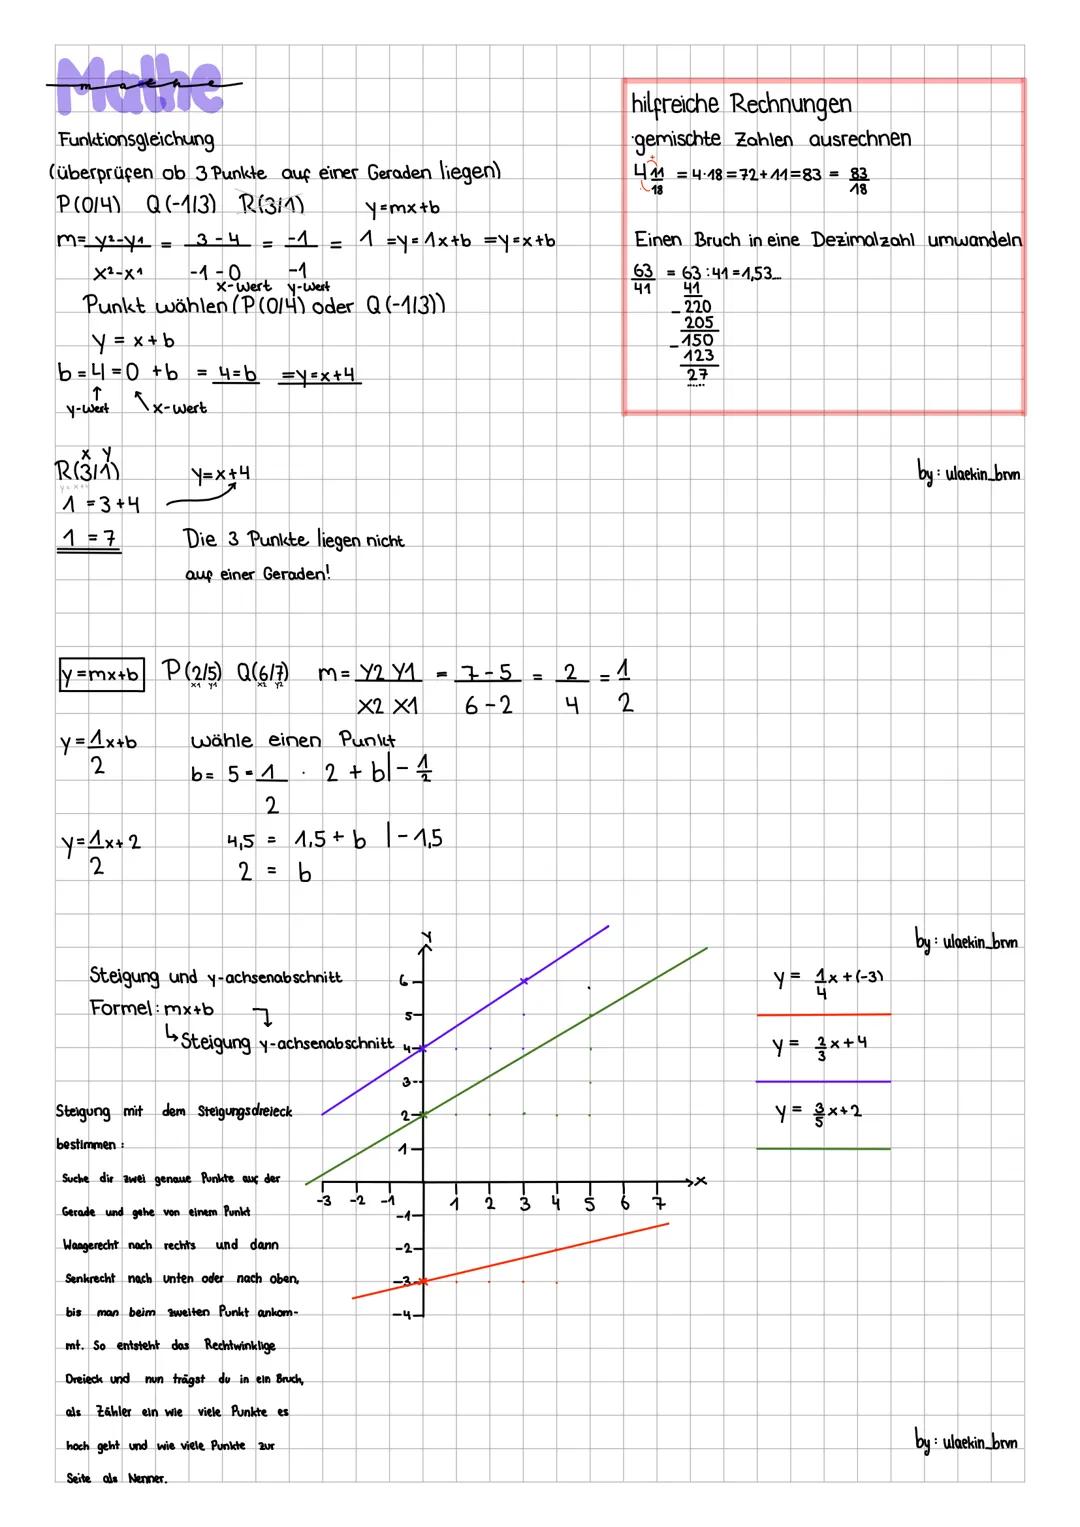 Mathe
mathe
Funktionsgleichung
(überprüfen ob 3 Punkte auf einer Geraden liegen)
P(0/4) Q(-1/3) R(3/1) y=mx+b
m= y²-y¹ / x²-x¹ = 3-4 / -1-0 = -1 / -1 = 1 =y=1x+b =y=x+b
x-wert y-wert
Punkt wählen (P(0/4) oder Q(-1/3))
y = x+b
b=4=0 +b = 4=b =y=x+4
↑ y-wert ↖ x-wert
x y
R(3/1) y=x+4
1 =3+4
1 =7 Die 3 Punkte liegen nicht
auf einer Geraden!
hilfreiche Rechnungen
·gemischte Zahlen ausrechnen
4 11/18 = 4·18=72+11=83 = 83/18
+
Einen Bruch in eine Dezimalzahl umwandeln
63/41 = 63:41=1,53...
41
-220
205
-150
123
27
......
by: ulaekin_brvn
y=mx+b P(2/5) Q(6/7) m= Y2 Y1 / X2 X1 = 7-5 / 6-2 = 2/4 = 1/2
x1 y1 x2 y2
y=1/2x+b wähle einen Punkt
b= 5=1/2 · 2 + b|-1/2
y=1/2x+2 4,5 = 1,5+b |-1,5
2 = b
by: ulaekin_brvn
Steigung und y-achsenabschnitt
Formel: mx+b
↳Steigung y-achsenabschnitt
Steigung mit dem Steigungsdreieck
bestimmen:
Suche dir zwei genaue Punkte auf der
Gerade und gehe von einem Punkt
Waagerecht nach rechts und dann
Senkrecht nach unten oder nach oben,
bis man beim zweiten Punkt ankom-
mt. So entsteht das Rechtwinklige
Dreieck und nun trägst du in ein Bruch,
als Zähler ein wie viele Punkte es
hoch geht und wie viele Punkte zur
Seite als Nenner.
y
6
5
4
3
2
1
-3 -2 -1 1 2 3 4 5 6 7 x
-1
-2
-3
-4
y= 1/4x+(-3)
y= 2/3x+4
y= 3/5x+2
by: ulaekin_brvn